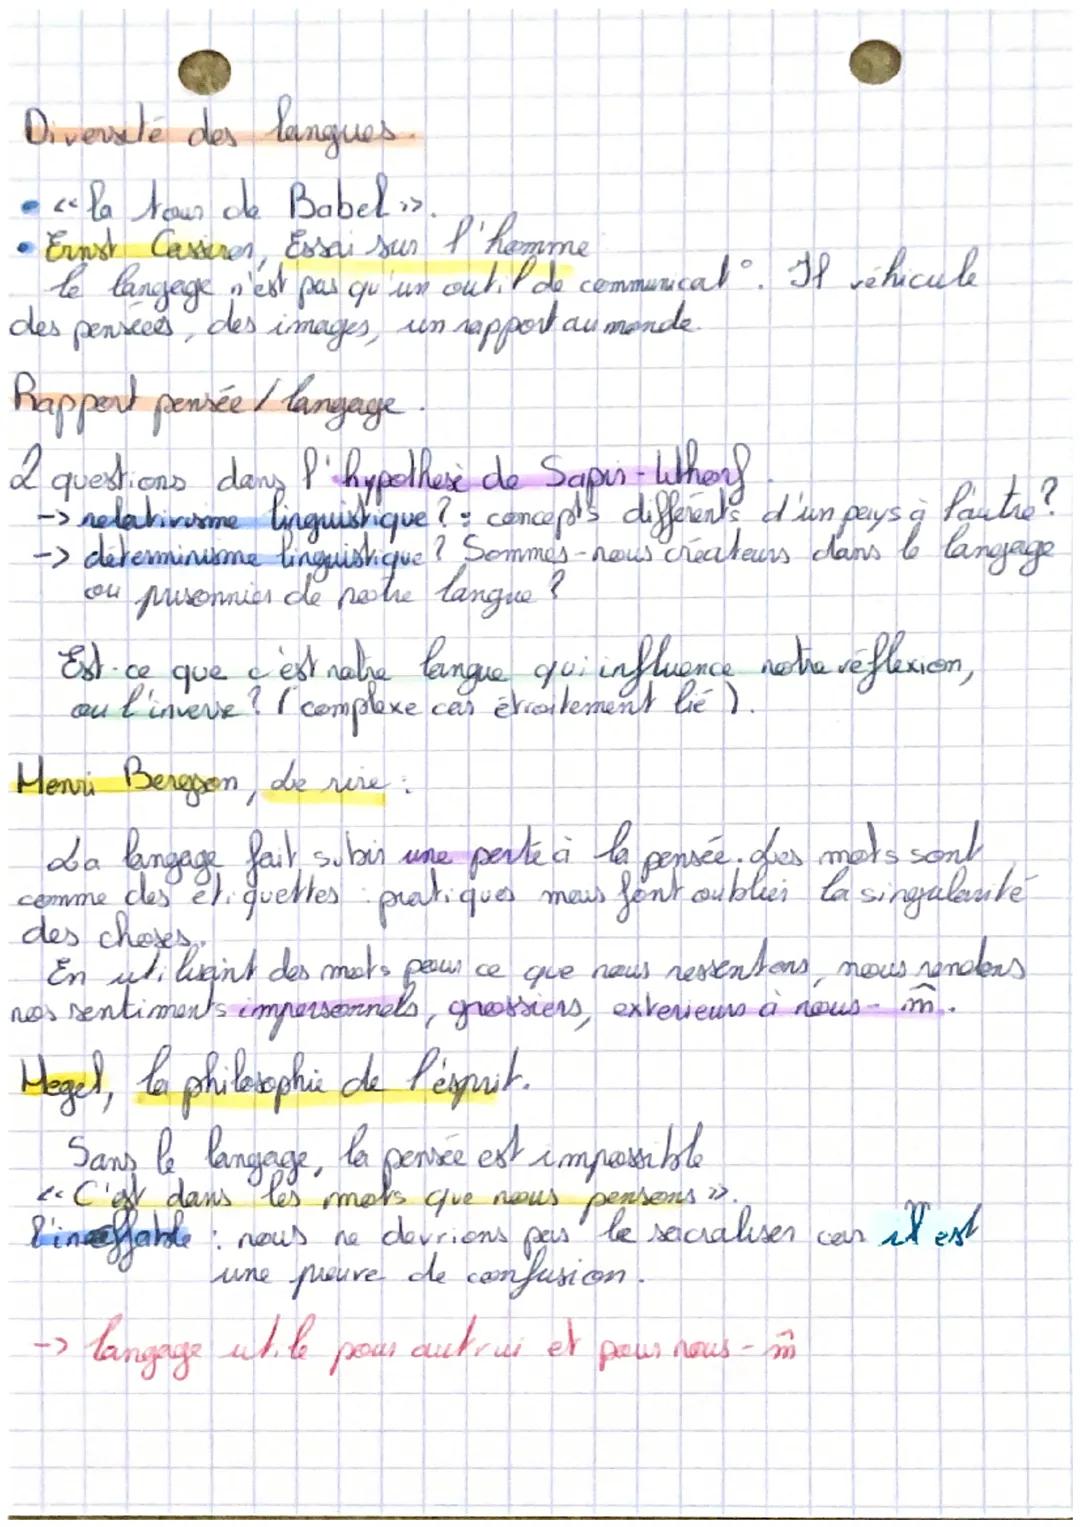 Diversité des langues.
• « la tour de Babel ».
• Ernst Cassirer, Essai sur l'homme
le langage n'est pas qu'un outil de communicat°. Il véhicule
des pensées, des images, un rapport au monde.
Rapport pensée / langage.
2 questions dans l'hypothese de Sapir-Whorf.
-> relativisme linguistique ? : concepts différents d'un pays à l'autre ?
-> déterminisme linguistique ? Sommes-nous créateurs dans le langage
ou prisonnier de notre langue ?
Est-ce que c'est notre langue qui influence notre réflexion,
ou l'inverse ? (complexe car étroitement lié).
Henri Bergson, Le rire :
La langage fait subir une perte à la pensée. Les mots sont
comme des étiquettes : pratiques mais font oublier la singularité
des choses.
En utilisant des mots pour ce que nous ressentons, nous rendons
nos sentiments impersonnels, grossiers, exterieurs à nous-m̂.
Hegel, la philosophie de l'esprit.
Sans le langage, la pensée est impossible
« C'est dans les mots que nous pensons ».
l'ineffable : nous ne devrions pas le sacraliser car il est
une preuve de confusion.
-> langage utile pour autrui et pour nous-m̂